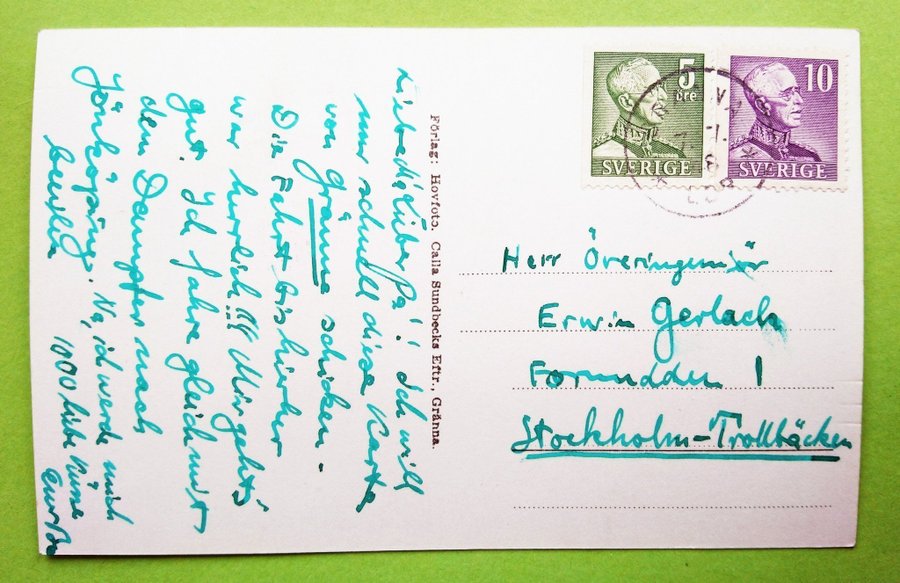 Liebe Mi, lieber Pa! Ich will
nur schnell diese Karte
von Gränna schicken.
Die Fahrt bis hierher
war herrlich!!! Mir geht's
gut. Ich fahre gleich mit
den Dampfer nach
Jönköping. Na, ich werde mich
1000 liebe Küsse
Förlag: Hovfoto. Calla Sundbecks Eftr., Gränna.
5
öre
SVERIGE
10
SVERIGE
Herr Överingenjör
Erwin Gerlach
Forundden 1
Stockholm-Trollbäcken